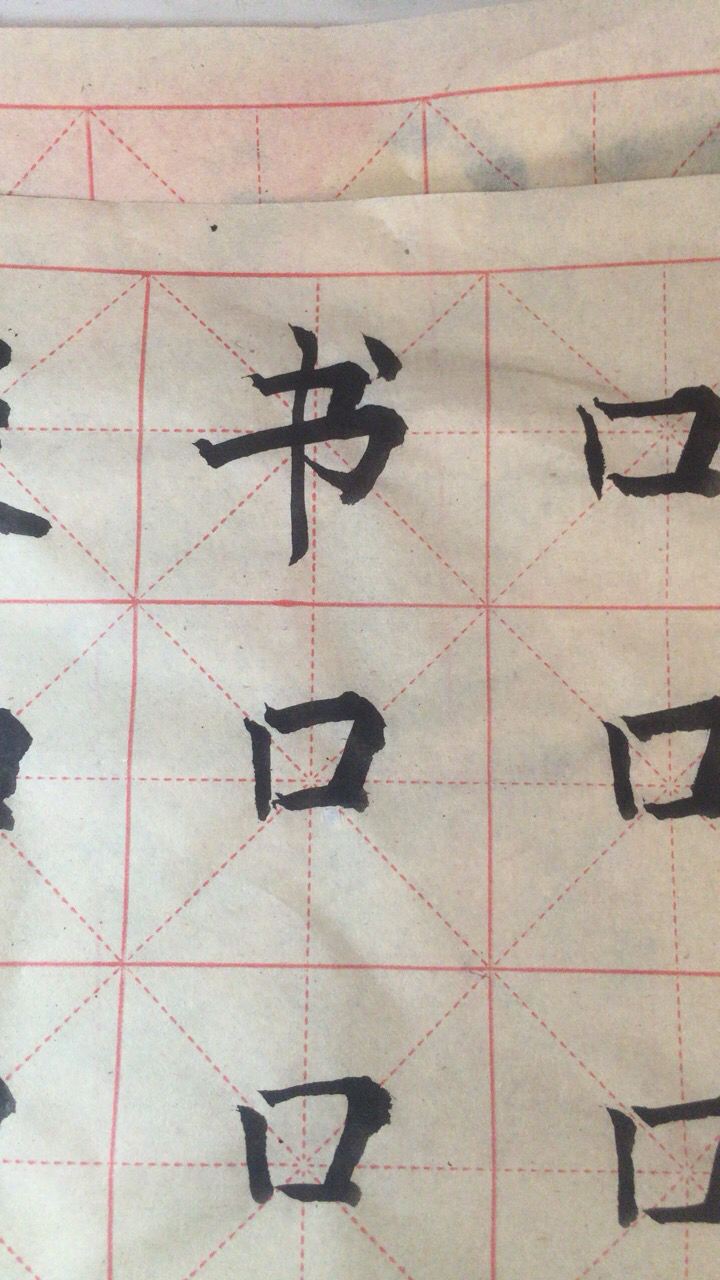 书 口
口 口
口 口